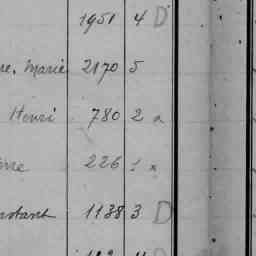 1951 4 D
re, Marie 2170 5
Henri 780 2 x
226 1 x
nstant 1138 3 D